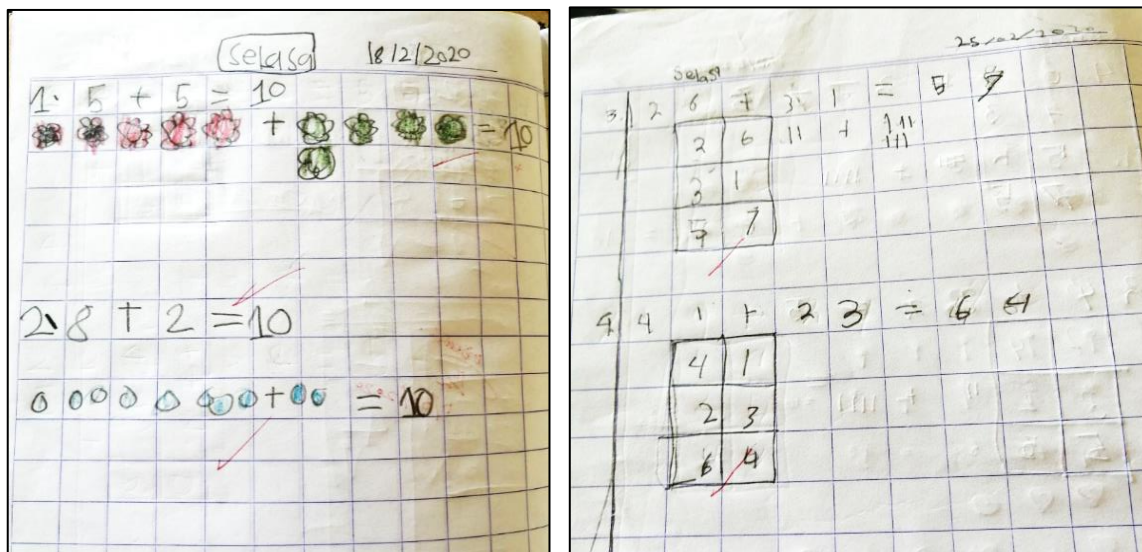 Selasa 18/2/2020
1. 5 + 5 = 10
+ = 10
2. 8 + 2 = 10
+ = 10
25/02/2020
Selasa
3. 2 6 + 3 1 = 5 7
2 6 11 + 111 111
3 1
5 7
4 4 1 + 2 3 = 6 4
4 1
2 3
6 4